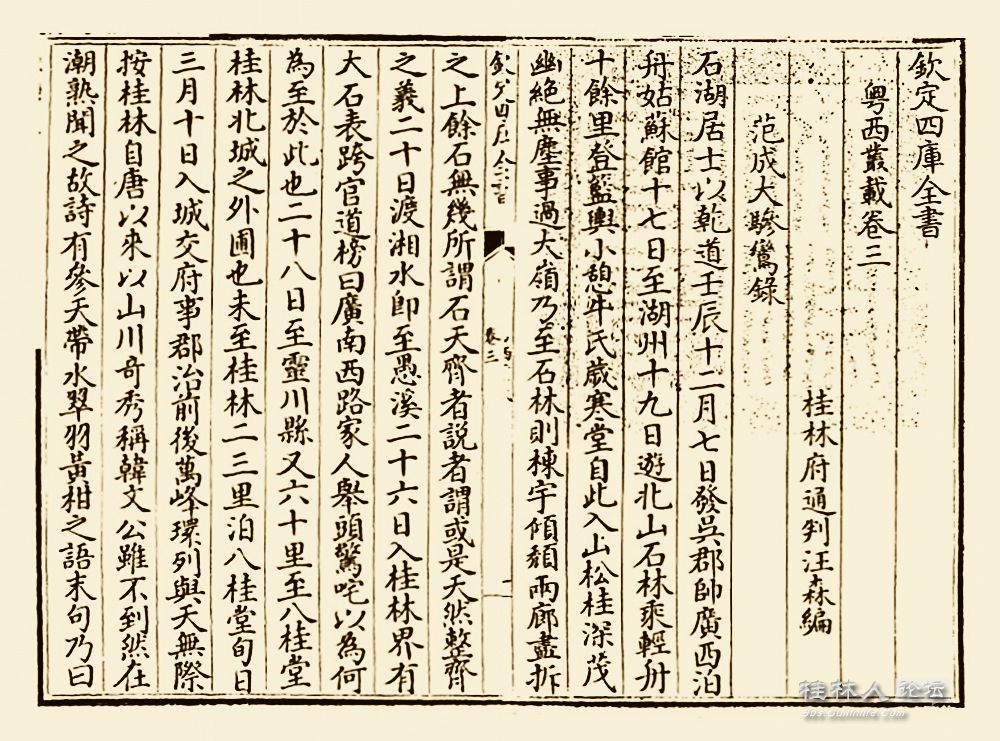 欽定四庫全書
粤西叢載卷三
桂林府通判汪森編
范成大驂鸞錄
石湖居士以乾道壬辰十二月七日發吳郡帥廣西泊
舟姑蘇館十七日至湖州十九日遊北山石林乘輕舟
十餘里登籃輿小憩牛氏歲寒堂自此入山松桂深茂
幽絕無塵事過大嶺乃至石林則棟宇傾頽兩廊盡拆
卷三
之上餘石無幾所謂石天齊者說者謂或是天然整齊
之義二十日渡湘水即至愚溪二十六日入桂林界有
大石表跨官道榜曰廣南西路家人舉頭驚咤以為何
為至於此也二十八日至靈川縣又六十里至八桂堂
桂林北城之外圃也未至桂林二三里泊八桂堂旬日
三月十日入城交府事郡治前後萬峰環列與天無際
按桂林自唐以來以山川奇秀稱韓文公雖不到然在
潮熟聞之故詩有參天帶水翠羽黃柑之語末句乃曰
桂林人论坛